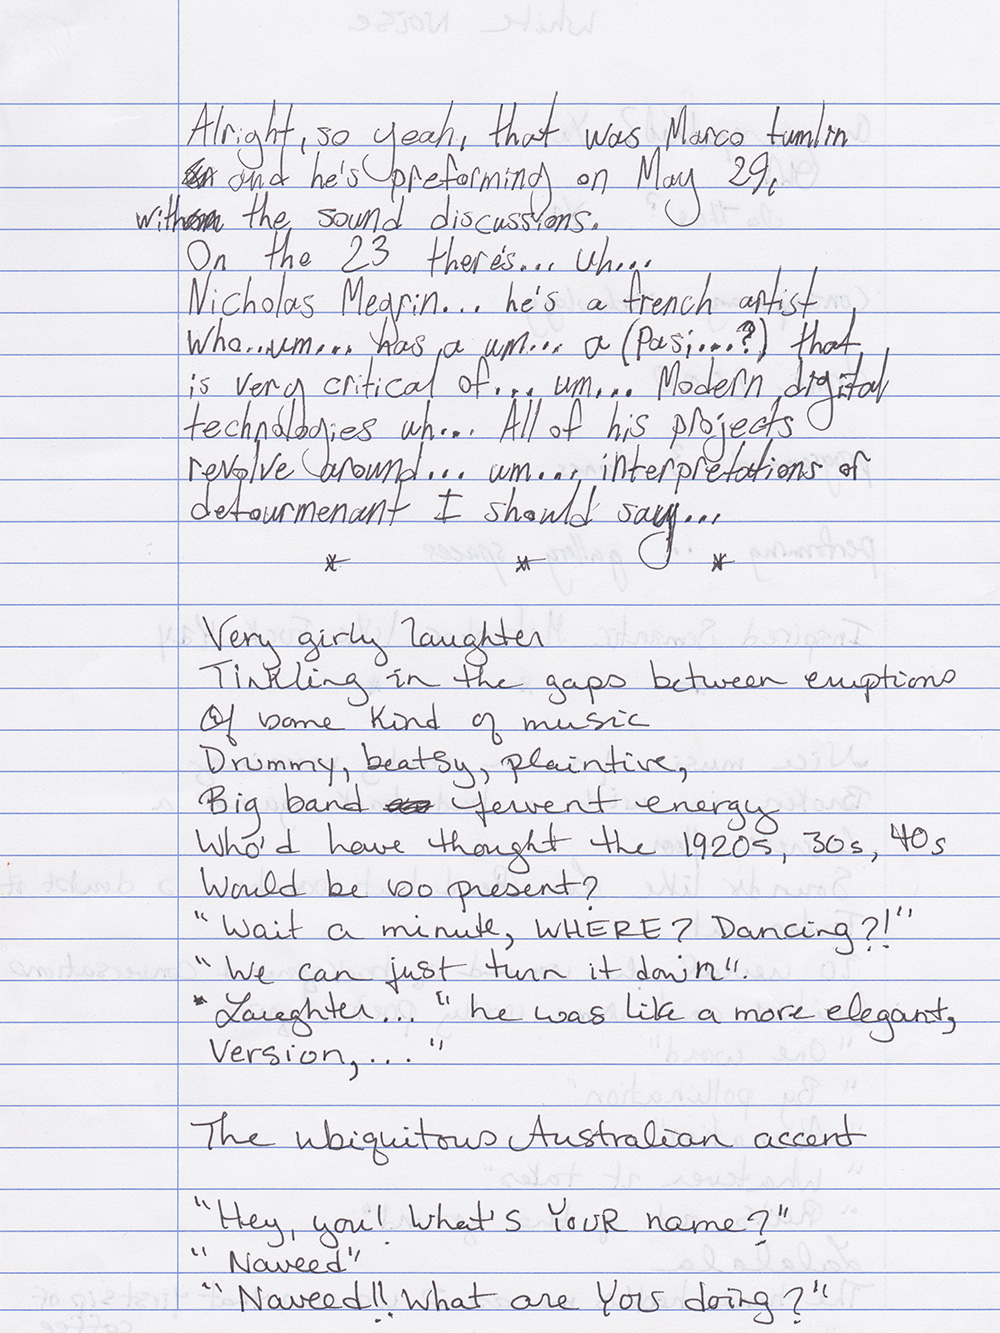 Alright, so yeah, that was Marco tumlin
and he's preforming on May 29,
with the sound discussions.
On the 23 there's... uh...
Nicholas Megrin... he's a french artist
who...um... has a um... a (Pasi....?) that
is very critical of... um... Modern digital
technologies uh... All of his projects
revolve around... um... interpretations or
detourmenant I should say...
* * *
Very girly laughter
Tinkling in the gaps between eruptions
Of some kind of music
Drummy, beatsy, plaintive,
Big band fervent energy
Who'd have thought the 1920s, 30s, 40s
Would be so present?
"Wait a minute, WHERE? Dancing?!"
"We can just turn it down".
*Laughter... "he was like a more elegant,
Version,..."
The ubiquitous Australian accent
"Hey, you! What's YOUR name?"
"Naveed"
"Naveed!! What are YOU doing?"